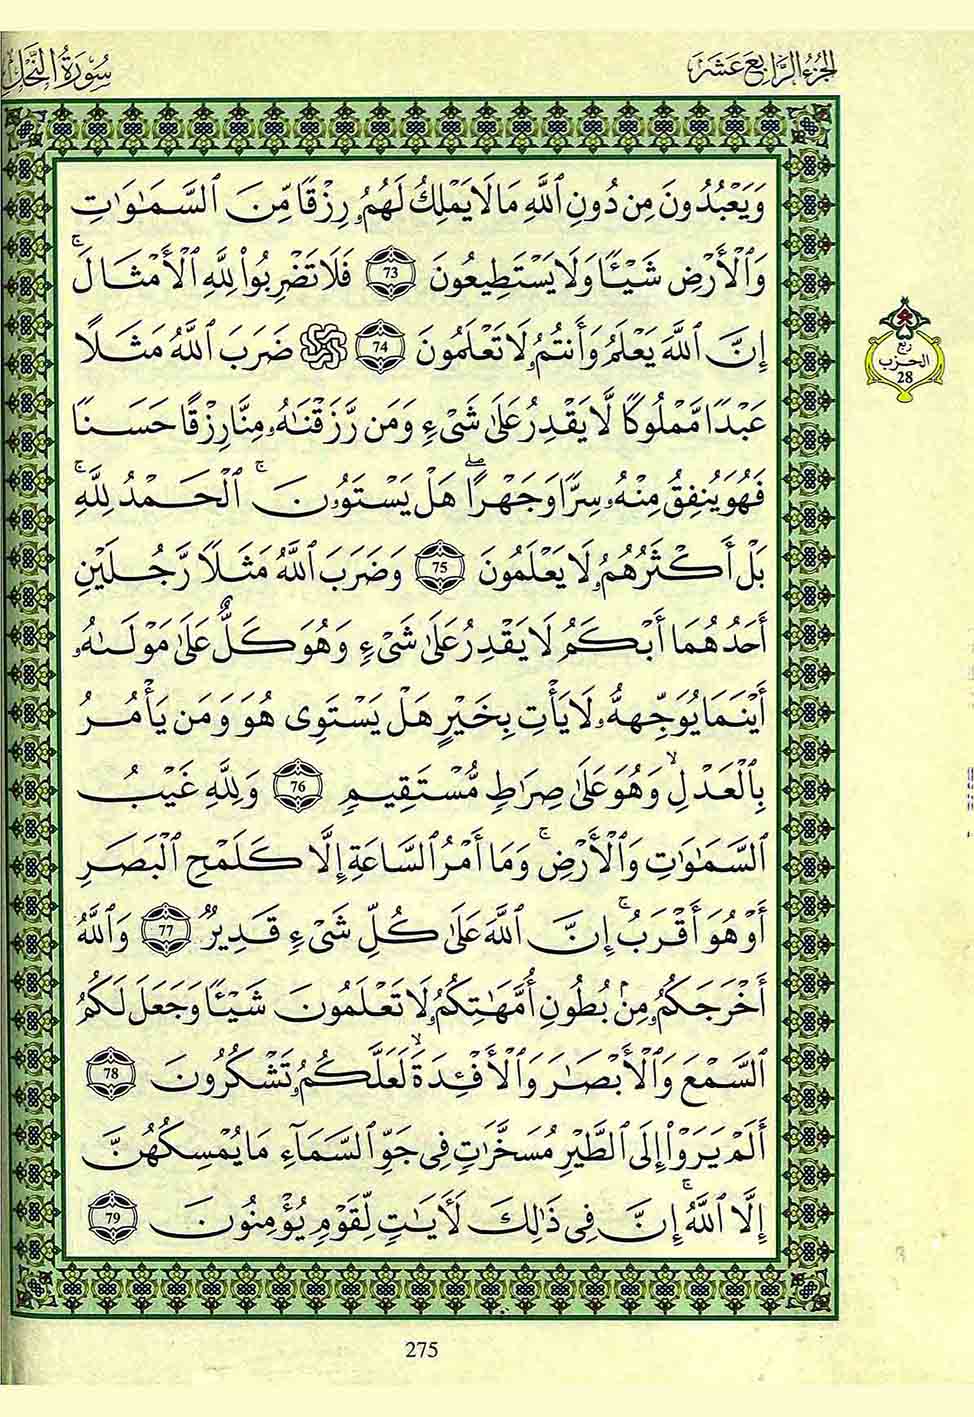 الجزء الرابع عشر
سورة النحل
وَيَعْبُدُونَ مِن دُونِ ٱللَّهِ مَا لَا يَمْلِكُ لَهُمُۥ رِزْقًا مِّنَ ٱلسَّمَـٰوَٰتِ
وَٱلْأَرْضِ شَيْـًٔا وَلَا يَسْتَطِيعُونَ 73 فَلَا تَضْرِبُوا۟ لِلَّهِ ٱلْأَمْثَالَ ۚ
إِنَّ ٱللَّهَ يَعْلَمُ وَأَنتُمُۥ لَا تَعْلَمُونَ 74 ضَرَبَ ٱللَّهُ مَثَلًا
عَبْدًا مَّمْلُوكًا لَّا يَقْدِرُ عَلَىٰ شَىْءٍ وَمَن رَّزَقْنَـٰهُۥ مِنَّا رِزْقًا حَسَنًا
فَهُوَ يُنفِقُ مِنْهُۥ سِرًّا وَجَهْرًا ۖ هَلْ يَسْتَوُۥنَ ۚ ٱلْحَمْدُ لِلَّهِ ۚ
بَلْ أَكْثَرُهُمُۥ لَا يَعْلَمُونَ 75 وَضَرَبَ ٱللَّهُ مَثَلًا رَّجُلَيْنِ
أَحَدُهُمَا أَبْكَمُ لَا يَقْدِرُ عَلَىٰ شَىْءٍ وَهُوَ كَلٌّ عَلَىٰ مَوْلَىٰهُۥ
أَيْنَمَا يُوَجِّههُّۥ لَا يَأْتِ بِخَيْرٍ هَلْ يَسْتَوِى هُوَ وَمَن يَأْمُرُ
بِٱلْعَدْلِ ۙ وَهُوَ عَلَىٰ صِرَٰطٍ مُّسْتَقِيمٍ 76 وَلِلَّهِ غَيْبُ
ٱلسَّمَـٰوَٰتِ وَٱلْأَرْضِ ۚ وَمَا أَمْرُ ٱلسَّاعَةِ إِلَّا كَلَمْحِ ٱلْبَصَرِ
أَوْ هُوَ أَقْرَبُ ۚ إِنَّ ٱللَّهَ عَلَىٰ كُلِّ شَىْءٍ قَدِيرٌ 77 وَٱللَّهُ
أَخْرَجَكُمُۥ مِنۢ بُطُونِ أُمَّهَـٰتِكُمُۥ لَا تَعْلَمُونَ شَيْـًٔا وَجَعَلَ لَكُمُ
ٱلسَّمْعَ وَٱلْأَبْصَـٰرَ وَٱلْأَفْـِٔدَةَ ۙ لَعَلَّكُمُۥ تَشْكُرُونَ 78
أَلَمْ يَرَوْا۟ إِلَى ٱلطَّيْرِ مُسَخَّرَٰتٍ فِى جَوِّ ٱلسَّمَآءِ مَا يُمْسِكُهُنَّ
إِلَّا ٱللَّهُ ۚ إِنَّ فِى ذَٰلِكَ لَـَٔايَـٰتٍ لِّقَوْمٍ يُؤْمِنُونَ 79
ربع
الحزب
28
275